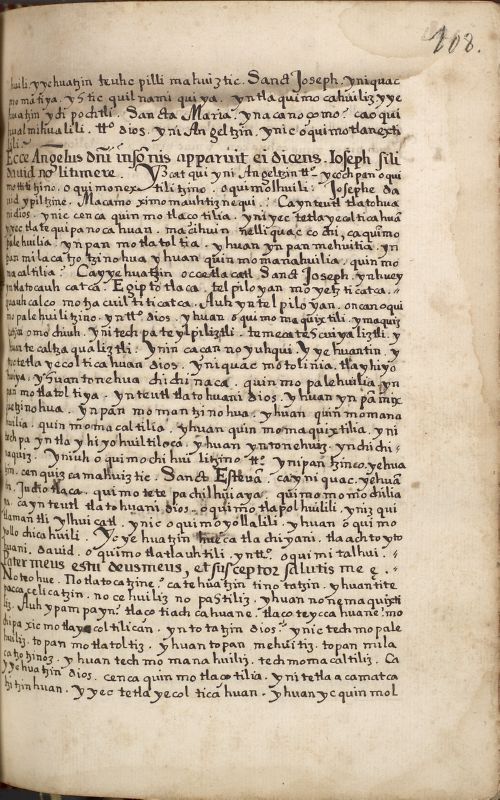 108.
huili. yyehuatzin teuhc pilli mahuiztic. Sanct Joseph. yniquac
momatiya. ystic quilnamiquiya. yntlaquimocahuiliz yye
huatzin ychpochtli. Sancta Maria. ynacanocomo? caoqui
hualmihualili. tto dios. yni Angeltzin. ynic oquimotlanexti
lili.
Ecce Angelus dni insõnis apparuit ei dicens. Ioseph fili
dauid noli timere. Yzcatqui yni Angeltzin tto. ycochpan oqui
mottititzino. oquimonextilitzino. oquimolhuili. Josephe da
uid ypiltzine. Macamo ximomauhtitzinequi. Cayn teutl tlatohua
ni dios. ynic cenca quinmotlaçotilia. yniyectetlayecolticahuã
yyectlatequipanocahuan. macihuin nelliquac coçhi, caquimo
palehuilia. ynpan motlatoltia. yhuan ynpan mehuitia. yn
pan milacatzotzinohua. yhuan quinmomanahuilia. quinmo
macaltilia. Cayyehuatzin occetlacatl Sanct Joseph. ynhuey
tlatocauhcatca. Egipto tlaca. telpiloyan moyetzticatca.
quauhcalco motzacuiltiticatca. Auh yn telpiloyan. oncanoqui
mopalehuilitzino. yn tto dios. yhuan oquimomaquixtili. ymaquiz
omochiuh. ynitechpa teylpiliztli. temecatescuiyaliztli. y
huan tecaltzaqualiztli. ynin cacan noyuhqui. Yyehuantin. y
tetlayecolticahuan dios. yniquac motolinia. tlayhiyo
huiya. ysuantonehua chichinaca. quinmopalehuilia. yn
pan motlatoltiya. ynteutl tlatohuani dios. yhuan ynpã milac
tzinohua. ynpan momantzinohua. yhuan quinmomana
huilia. quinmomacaltilia. yhuan quinmomaquixtilia. yni
techpa yntlayhiyohuiltiloca. yhuan yntonehuiz. ynchichi-
naquiz. Yniuh oquimochihuilitzino tto. ynipantzinco. yehua
tzin. cenquizcamahuiztic. Sanct Esteuã. cayniquac. yehuã
tin. Judiotlaca. quimotetepachilhuiaya. quimomomochilia
ya. caynteutl tlatohuani dios. oquimotlapolhuilili. yniz qui
tlamantli ylhuicatl. ynic oquimoyollalili. yhuan oquimo
yollochicahuili. Ycyehuatzin huecatlachiyani. tlaachtoyto
huani. dauid. oquimotlatlauhtili. yn tto. oquimitalhui.
Pater meus es tu deus meus, et susceptor salutis mee.
Noteohue. Notlatocatzine? catehuatzin tinotatzin. yhuantite
paccacelicatzin. nocehuiliz nopastiliz. yhuan nonemaquixti
liz. Auhypampayn? tlacotiachcahuane. tlacoteyccahuane? mo
chipa xicmotlayecoltilican. ynto tatzin dios. ynic techmopale
huiliz. topan motlatoltiz. yhuan topan mehuitiz. topan mila
catzotzinoz. yhuan techmomanahuiliz. techmomacaltiliz. Ca
yyehuatzin dios. cenca quinmotlaçotilia. ynitetlaacamatca
tzitzinhuan. yyectetlayecolticahuan. yhuan yc quinmol